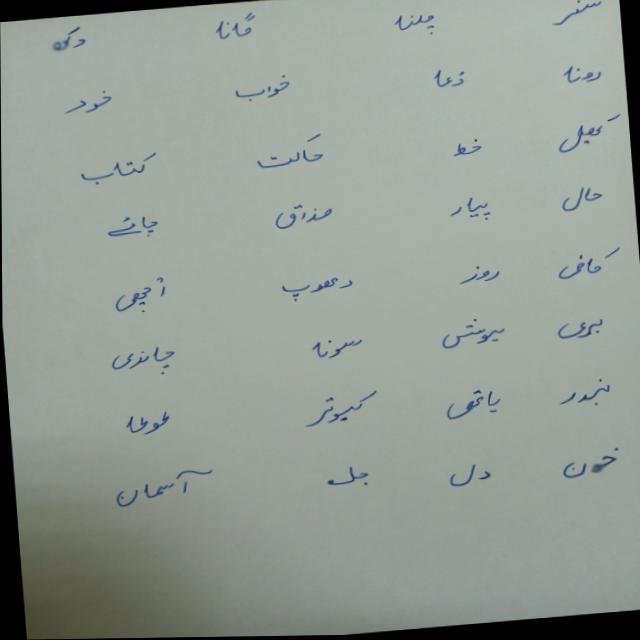 سفر چلنا گانا دکھ
رونا دعا خواب خود
کھیل خط حالت کتاب
حال پیار مذاق چائے
کافی روز دھوپ اچھی
بری سونا چاندی
بندر کبوتر طوطا
خون دل جل آسمان